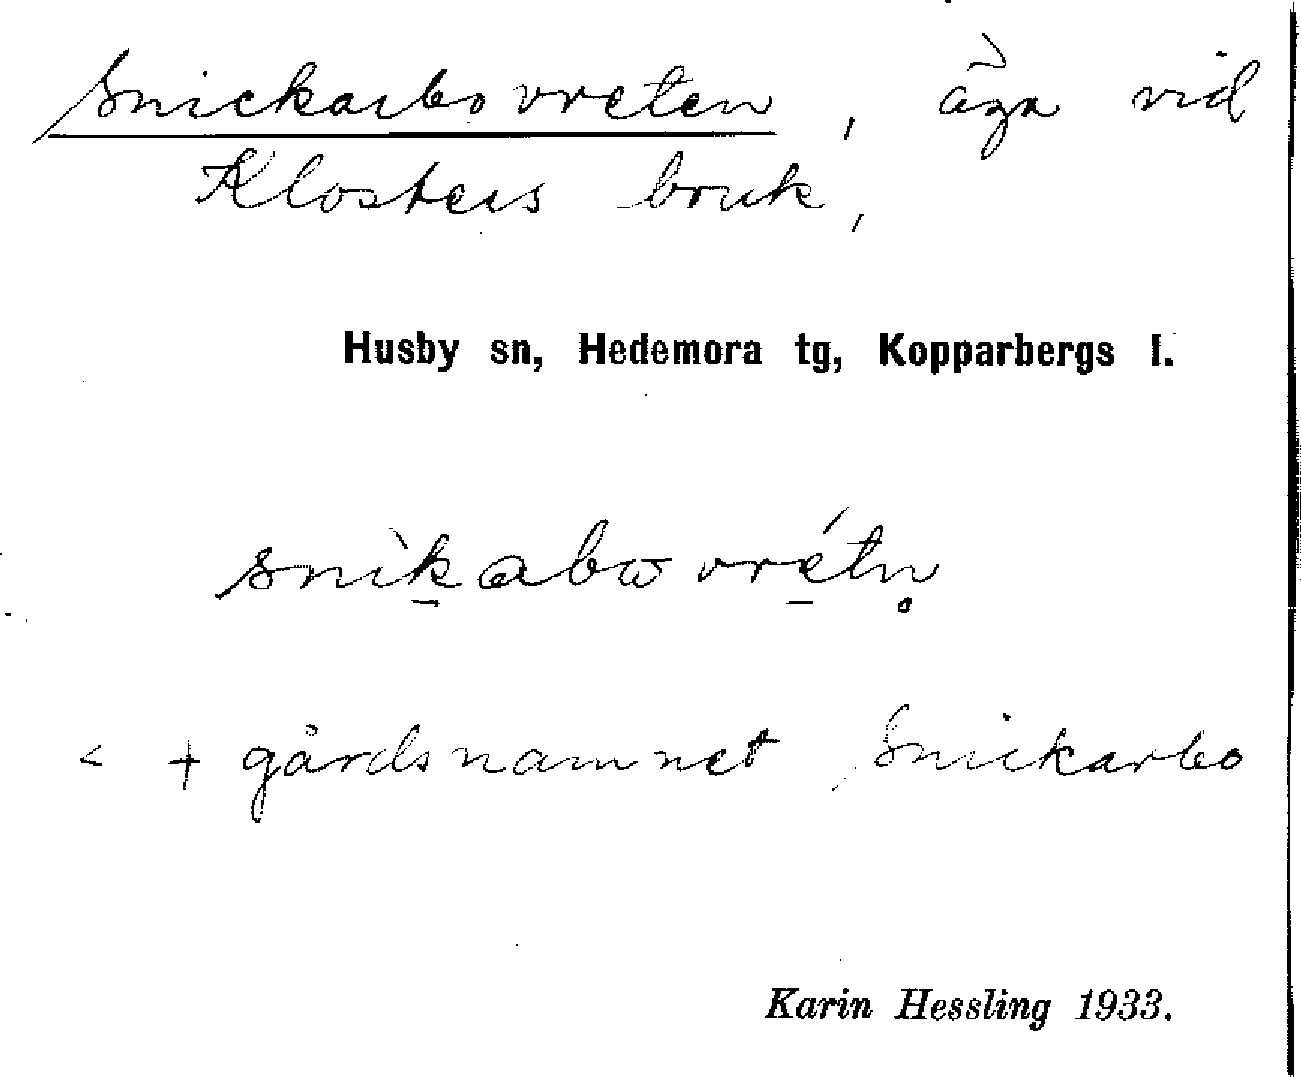 Snickarbovreten, äga vid
Klosters bruk,
Husby sn, Hedemora tg, Kopparbergs l.
snìk̠abωvrét̠n̥
< + gårdsnamnet Snickarbo
Karin Hessling 1933.